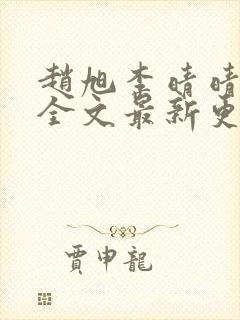 趙旭李晴晴
全文最新更
賈申龍